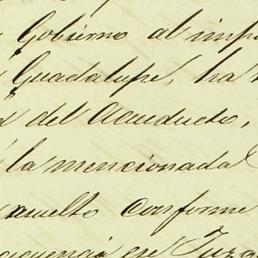 Gobierno al imp
Guadalupe, ha
del Acueducto,
la mencionada
suelto conforme
en Juzg